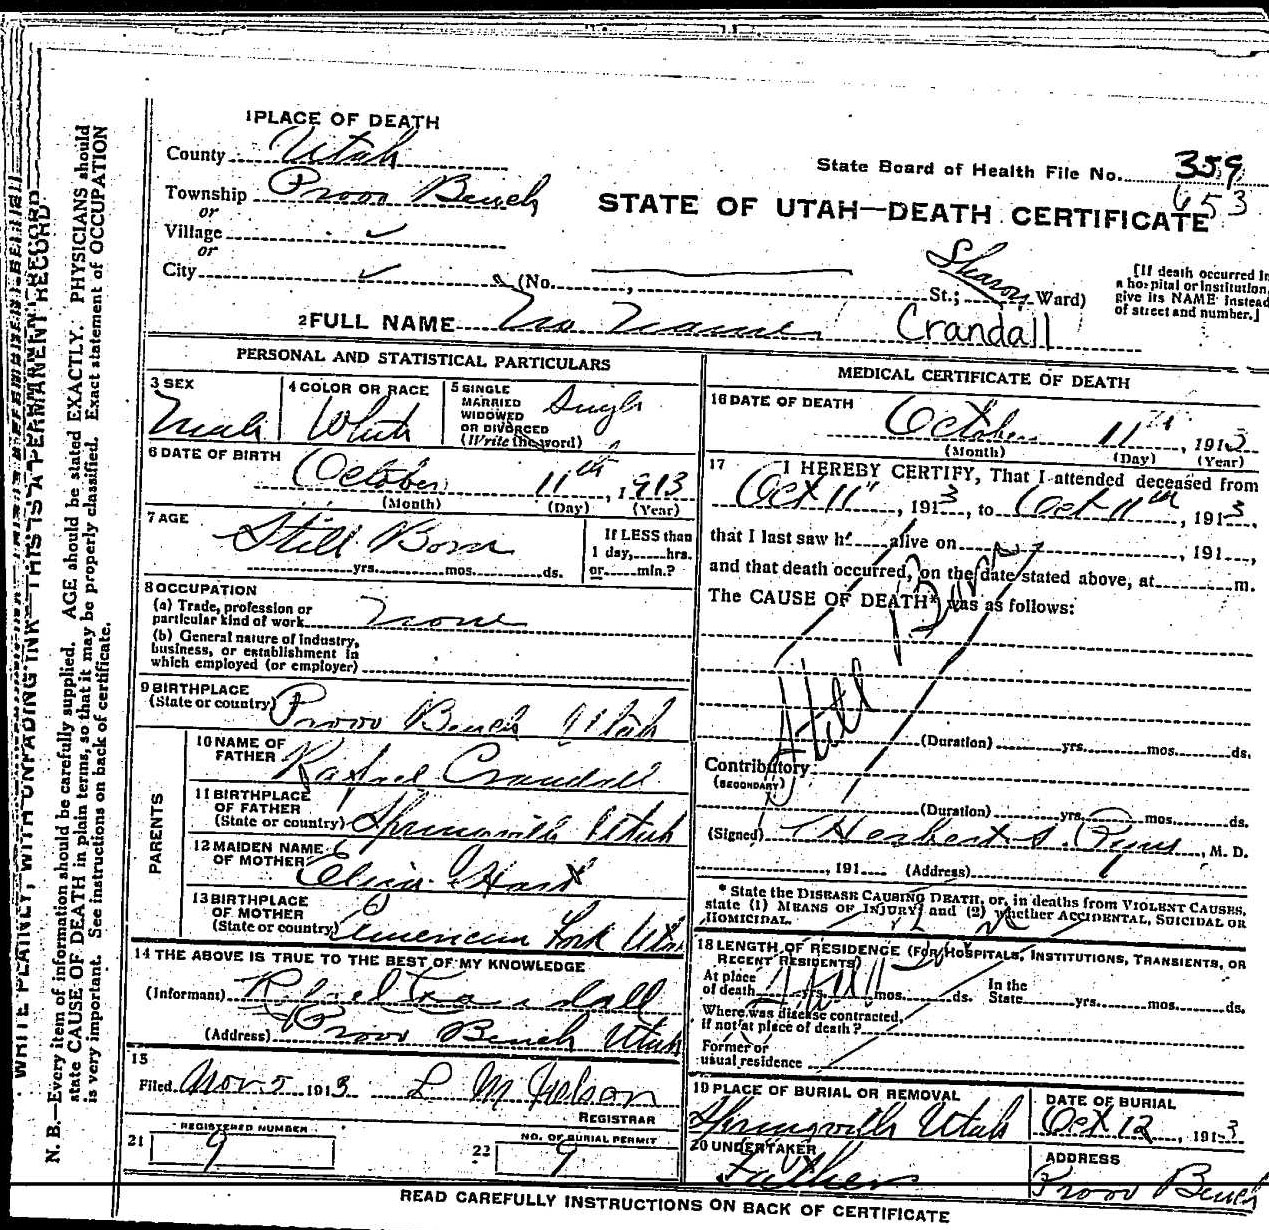 1 PLACE OF DEATH
County Utah
State Board of Health File No. 359
653
Township Provo Bench
or
STATE OF UTAH—DEATH CERTIFICATE
Village
or
City
(No. , St.; Sharon Ward)
[If death occurred in
a hospital or institution,
give its NAME instead
of street and number.]
2 FULL NAME No Name Crandall
PERSONAL AND STATISTICAL PARTICULARS
3 SEX
Male
4 COLOR OR RACE
White
5 SINGLE
MARRIED
WIDOWED
OR DIVORCED
(Write the word)
Single
6 DATE OF BIRTH
October 11th, 1913
(Month) (Day) (Year)
7 AGE
Still Born
yrs. mos. ds.
If LESS than
1 day, hrs.
or min.?
8 OCCUPATION
(a) Trade, profession or
particular kind of work None
(b) General nature of industry,
business, or establishment in
which employed (or employer)
9 BIRTHPLACE
(State or country) Provo Bench Utah
PARENTS
10 NAME OF
FATHER Rafael Crandall
11 BIRTHPLACE
OF FATHER
(State or country) Springville Utah
12 MAIDEN NAME
OF MOTHER Eliza Hart
13 BIRTHPLACE
OF MOTHER
(State or country) American Fork Utah
14 THE ABOVE IS TRUE TO THE BEST OF MY KNOWLEDGE
(Informant) Rafael Crandall
(Address) Provo Bench Utah
15
Filed Nov 5 1913 L M Nelson
REGISTRAR
21 REGISTERED NUMBER
9
22 NO. OF BURIAL PERMIT
9
MEDICAL CERTIFICATE OF DEATH
16 DATE OF DEATH
October 11th, 1913
(Month) (Day) (Year)
17 I HEREBY CERTIFY, That I attended deceased from
Oct 11", 1913, to Oct 11th, 1913,
that I last saw h alive on , 191 ,
and that death occurred, on the date stated above, at m.
The CAUSE OF DEATH* was as follows:
Still Born
(Duration) yrs. mos. ds.
Contributory
(SECONDARY)
(Duration) yrs. mos. ds.
(Signed) Herbert S. Pyne, M. D.
, 191 (Address)
* State the DISEASE CAUSING DEATH, or, in deaths from VIOLENT CAUSES,
state (1) MEANS OF INJURY; and (2) whether ACCIDENTAL, SUICIDAL OR
HOMICIDAL.
18 LENGTH OF RESIDENCE (FOR HOSPITALS, INSTITUTIONS, TRANSIENTS, OR
RECENT RESIDENTS)
At place
of death yrs. mos. ds.
In the
State yrs. mos. ds.
Where was disease contracted,
if not at place of death?
Former or
usual residence
19 PLACE OF BURIAL OR REMOVAL
Springville Utah
DATE OF BURIAL
Oct 12, 1913
20 UNDERTAKER
Father
ADDRESS
Provo Bench
READ CAREFULLY INSTRUCTIONS ON BACK OF CERTIFICATE
WRITE PLAINLY, WITH UNFADING INK—THIS IS A PERMANENT RECORD
N. B.—Every item of information should be carefully supplied. AGE should be stated EXACTLY. PHYSICIANS should
state CAUSE OF DEATH in plain terms, so that it may be properly classified. Exact statement of OCCUPATION
is very important. See instructions on back of certificate.